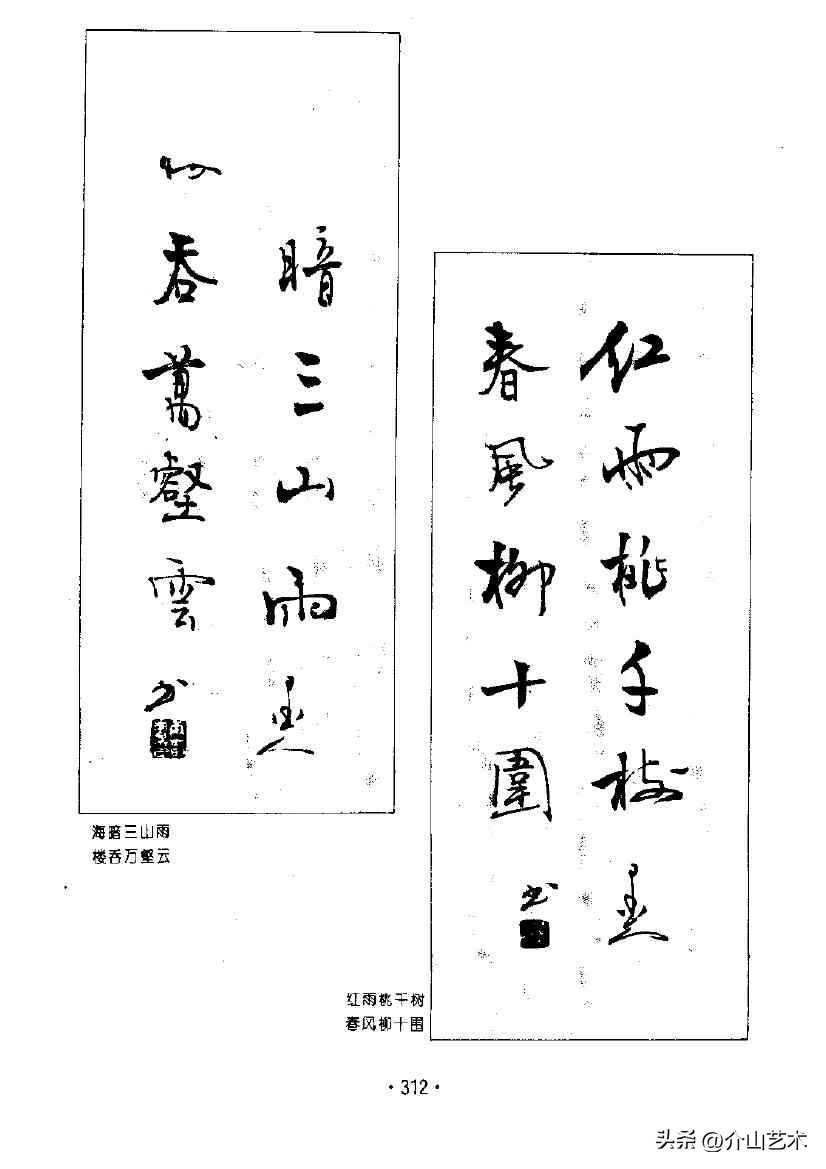 暗三山雨
吞萬壑雲 书
海暗三山雨
楼吞万壑云
红雨桃千树
春風柳十圍 书
红雨桃千树
春风柳十围
·312·
头条 @介山艺术